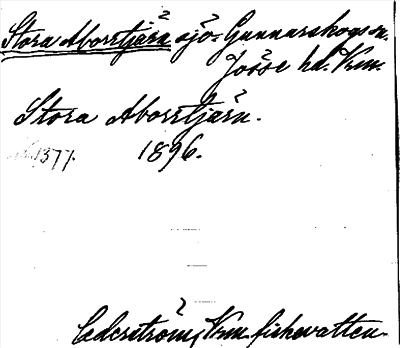 Stora Aborrtjärn sjö. Gunnarskogs sn.
Jösse hd. Vrm.
Stora Aborrtjärn.
1377. 1896.
Cederström, Vrm. fiskevatten.